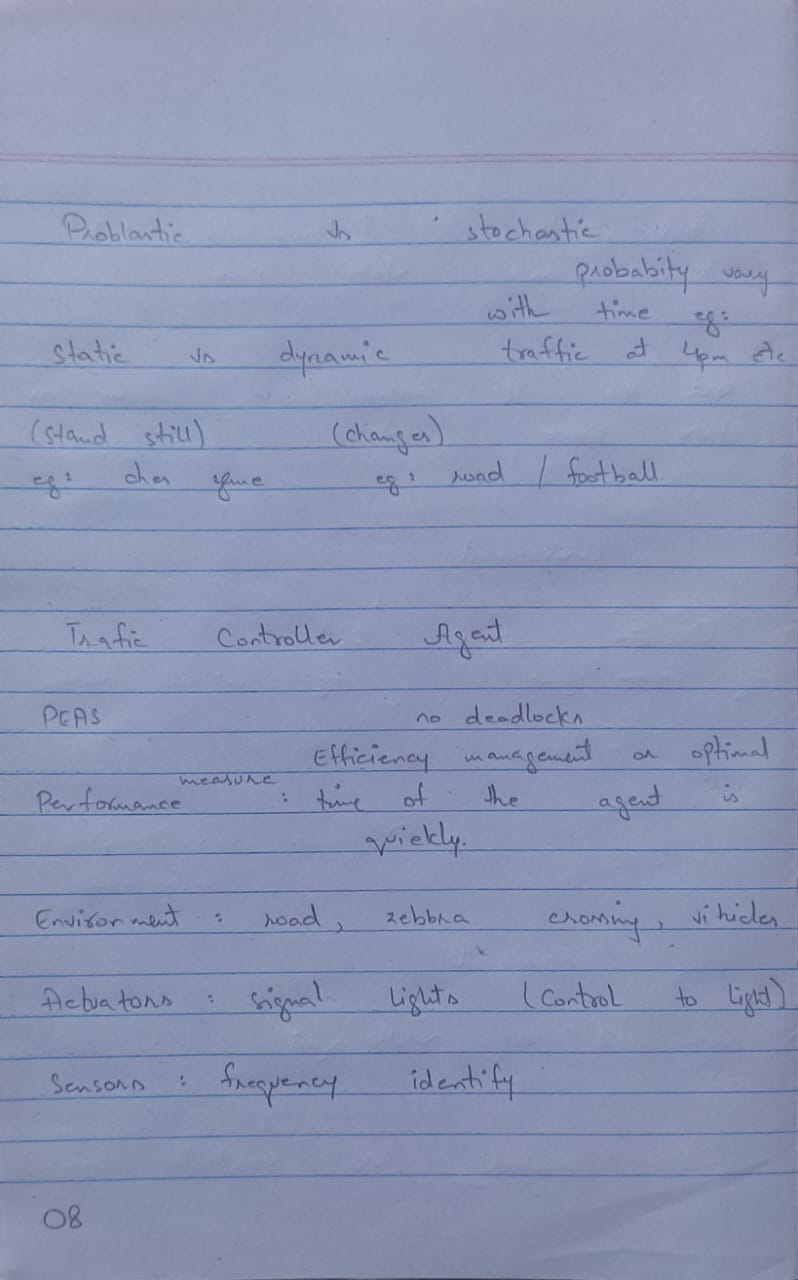 Problantic vs stochastic
probabity vary
with time eg:
Static vs dynamic traffic at 4pm etc
(stand still) (changes)
eg: ches game eg: road / football.
Trafic Controller Agent
PEAS no deadlocks
Efficiency management or optimal
measure
Performance : time of the agent is
quickly.
Environment : road, zebbra crossing, vihicles
Actuators : signal lights (Control to light)
Sensors : frequency identify
08